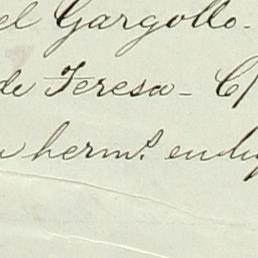 el Gargollo.
de Teresa - C/
hermº.